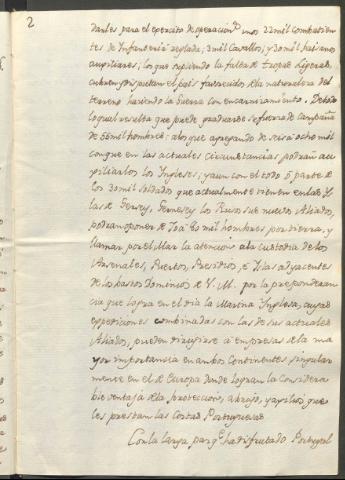 2
darles para el exercito de operacion.s unos 22 mil combatien
tes de Infanteria reglada, 3 mil Cavallos, y 30 mil paisanos
auxiliares; los que supliendo la falta de Tropas Ligeras,
cubren y disputan el pais favorecidos de la naturaleza del
terreno haciendo la Guerra con encarnizamiento. De todo
lo qual resulta que puede graduarse su fuerza de Campaña
de 55 mil hombres: a los que agregando de seis à ocho mil
con que en las actuales circunstancias podrán au
xiliarlos los Ingleses; y aun con el todo ò parte de
los 30 mil Soldados que actualmente tienen en las Y
las de Jersey, Gernesey los Rusos sus nuevos Aliados,
podran oponer de 70 à 80 mil hombres por tierra, y
llamar por el Mar la atencion à la custodia de los
Arsenales, Puertos, Presidios, è Yslas adyacentes
de los bastos Dominios de V. M. por la preponderan
cia que logra en el dia la Marina Ynglesa, cuyas
expediciones combinadas con las de sus actuales
Aliados, pueden dirigirse à empresas de la ma
yor importancia en ambos Continentes, singular
mente en el de Europa donde logran la considera
ble ventaja de la proteccion, abrigo, y auxilios que
les prestan las Costas Portuguesas
Con la larga paz q.e ha disfrutado Portugal